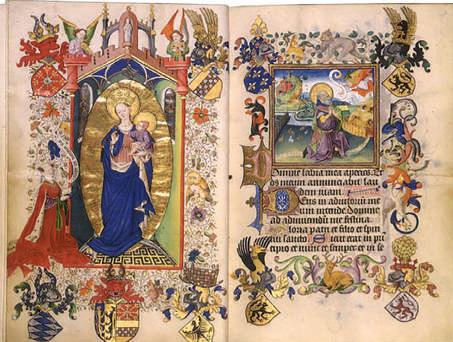 Domine labia mea aperies. Et
os meum annunciabit lau
dem tuam.
Deus in adiutorium me
um intende. Domine
ad adiuuandum me festina.
Gloria patri et filio et spiri
tui sancto. Sicut erat in prin
cipio et nunc et semper et in se